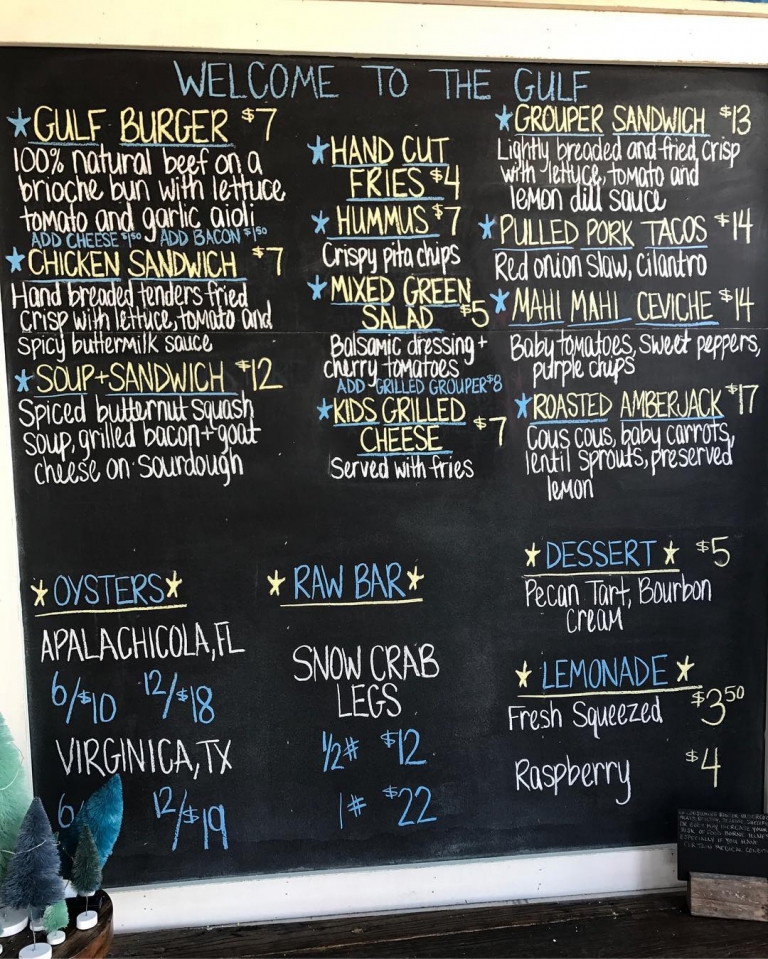 WELCOME TO THE GULF
★GULF BURGER $7
100% natural beef on a
brioche bun with lettuce,
tomato and garlic aioli
ADD CHEESE $1.50 ADD BACON $1.50
★CHICKEN SANDWICH $7
Hand breaded tenders fried
crisp with lettuce, tomato and
spicy buttermilk sauce
★SOUP+SANDWICH $12
Spiced butternut squash
soup, grilled bacon+goat
cheese on sourdough
★HAND CUT
FRIES $4
★HUMMUS $7
Crispy pita chips
★MIXED GREEN
SALAD $5
Balsamic dressing +
cherry tomatoes
ADD GRILLED GROUPER $8
★KIDS GRILLED
CHEESE $7
Served with fries
★GROUPER SANDWICH $13
Lightly breaded and fried crisp
with lettuce, tomato and
lemon dill sauce
★PULLED PORK TACOS $14
Red onion slaw, cilantro
★MAHI MAHI CEVICHE $14
Baby tomatoes, sweet peppers,
purple chips
★ROASTED AMBERJACK $17
Cous cous, baby carrots,
lentil sprouts, preserved
lemon
★OYSTERS★
APALACHICOLA, FL
6/$10 12/$18
VIRGINICA, TX
6 12/$19
★RAW BAR★
SNOW CRAB
LEGS
1/2# $12
1# $22
★DESSERT★ $5
Pecan Tart, Bourbon
Cream
★LEMONADE★
Fresh Squeezed $3.50
Raspberry $4